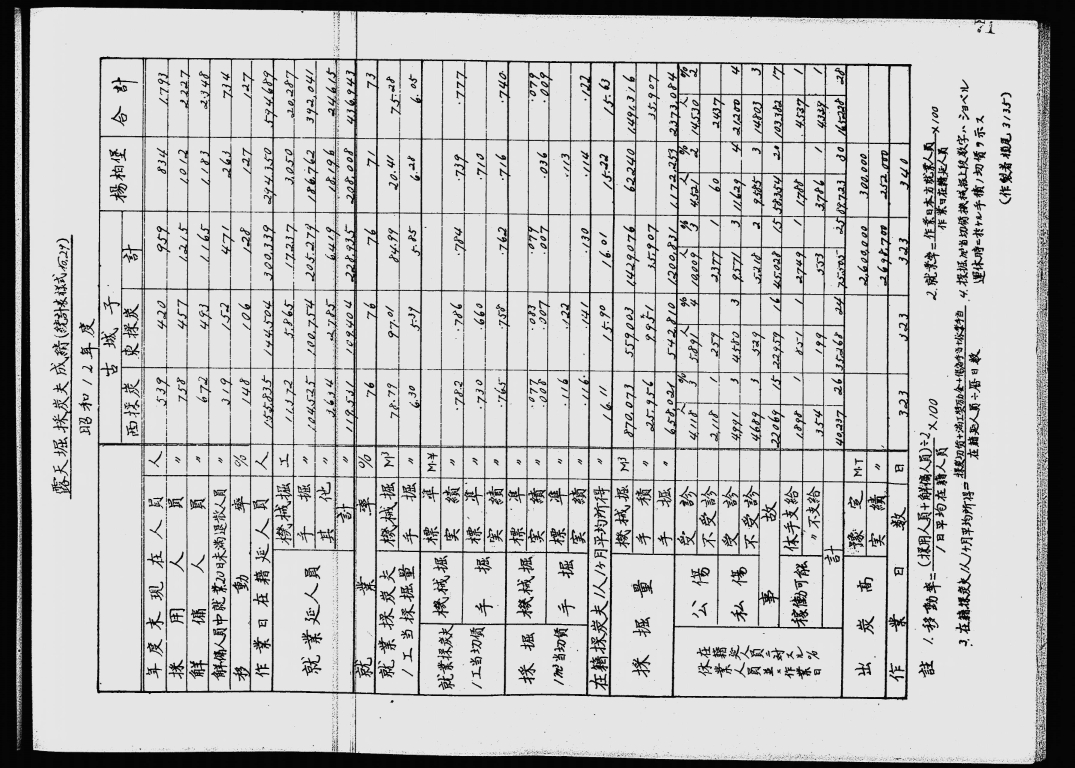 露天掘採炭夫成績(統計表様式何29)
昭和12年度
古城子 楊柏堡 合計
西採炭 東採炭 計
年度末現在人員 人 539 420 959 834 1.793
採用人員 〃 758 457 1.215 1.012 2.227
解傭人員 〃 672 493 1.165 1.183 2.348
解傭人員中就業20日未満退散人員 〃 319 152 471 263 734
移動率 % 148 106 128 127 127
作業日在籍延人員 人 155.835 144.504 300.339 294.350 594.689
就業延人員
機械掘 工 11.372 5.865 17.237 3.050 20.287
手掘 〃 104.525 100.754 205.279 186.762 392.041
其他 〃 3.634 2.785 6.419 18.196 24.615
計 〃 119.531 109.404 228.935 208.008 436.943
就業率 % 76 76 76 71 73
就業採炭夫1工当採掘量
機械掘 M³ 78.79 97.01 84.99 20.41 75.28
手掘 〃 6.30 5.39 5.85 6.28 6.05
就業採炭夫1工当切賃
機械掘 標準 M.¥ .782 .786 .784 .739 .777
実績 〃
手掘 標準 〃 .730 .660 .710
実績 〃 .765 .758 .762 .716 .740
採掘1m³当切賃
機械掘 標準 〃 .077 .083 .079 .079
実績 〃 .008 .007 .007 .036 .009
手掘 標準 〃 .116 .122 .113
実績 〃 .116 .141 .130 .114 .122
在籍採炭夫1人1ヶ月平均所得 〃 16.11 15.90 16.01 15.22 15.63
採掘量
機械掘 M³ 870.073 559.003 1.429.076 62.240 1.491.316
手積 〃 25.956 9.951 35.907 35.907
手掘 〃 658.021 542.810 1.200.831 1.172.253 2.373.084
休業在籍延人員並ニ作業延人員ニ対スル%
公傷 受診 人 4.118 % 3 人 5.891 % 4 10.009 % 3 人 4.521 % 2 人 14.530 % 2
不受診 2.118 1 259 2.377 1 60 2.437
私傷 受診 4.991 3 4.580 3 9.571 3 11.629 4 21.200 4
不受診 4.689 3 529 5.218 2 9.585 3 14.803 3
事故 22.069 15 22.959 16 45.028 15 58.354 20 103.382 17
稼働可能 休手支給 1.898 1 851 1 2.749 1 1.788 1 4.537 1
〃不支給 354 199 553 3.786 1 4.339 1
計 40.237 26 35.268 24 75.505 25 89.723 30 165.228 28
出炭高
豫定 M.T 2.600.000 300.000
実績 〃 2.698.700 252.000
作業日数 日 323 323 323 340
註 1. 移動率=(採用人員+解傭人員)÷2/1日平均在籍人員×100
2. 就業率=作業日本方就業人員/作業日在籍延人員×100
3. 在籍採炭夫1人1ヶ月平均所得=
在籍延人員÷暦日数
4. 採掘m³当切賃機械掘上段数字ハショベル
運休時ニ於ケル手積ノ切賃ヲ示ス
(作製者 植見 3135)